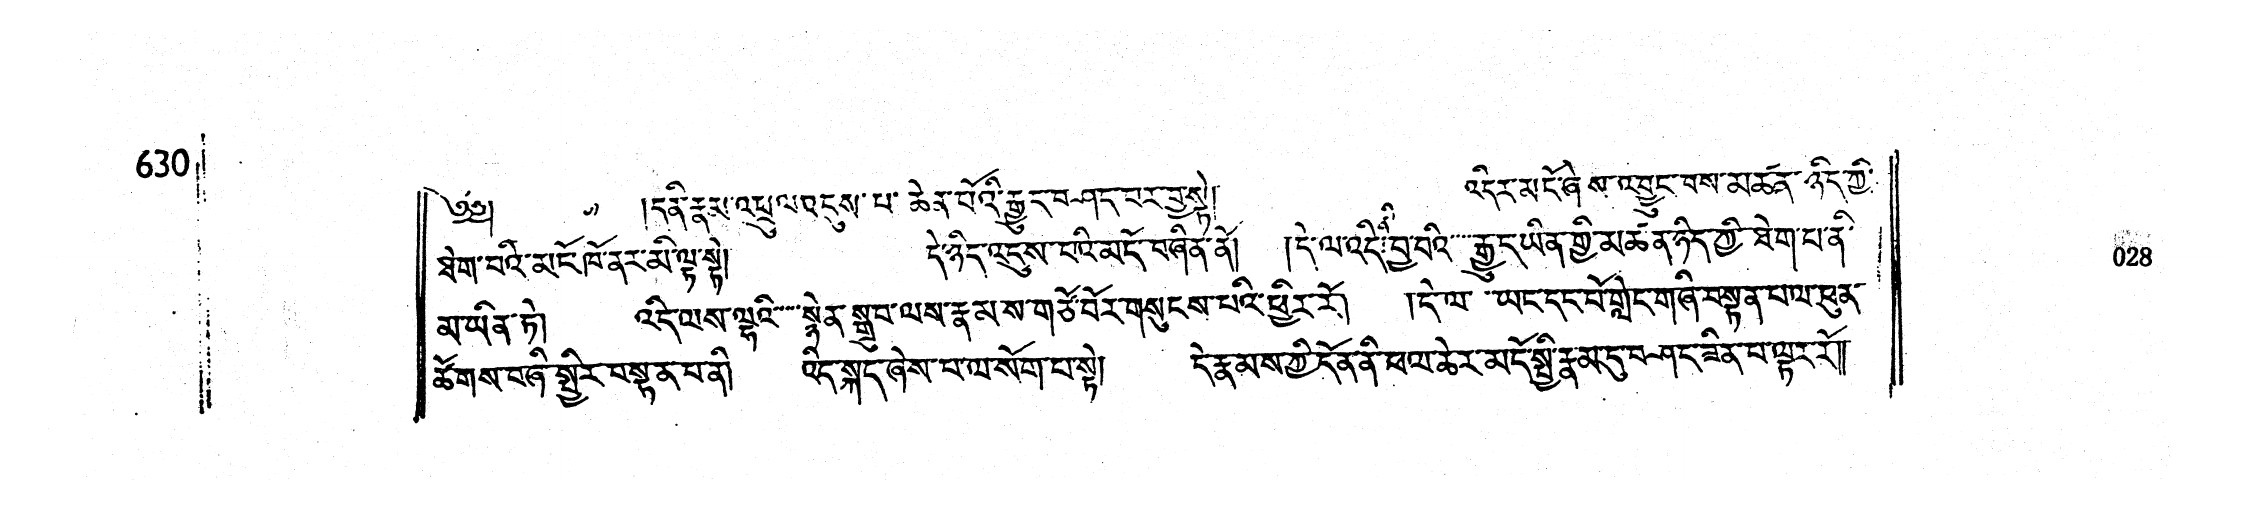 630
༄༅། ། །ད་ནི་རྣམ་འཕྲུལ་འདུས་པ་ཆེན་པོའི་རྒྱུད་བཤད་པར་བྱ་སྟེ། འདིར་མངོན་ཞེས་འབྱུང་བས་མཚན་ཉིད་ཀྱི་
ཐེག་པའི་མདོ་ཁོ་ནར་མི་ལྟ་སྟེ། དེ་ཉིད་འདུས་པའི་མདོ་བཞིན་ནོ། །དེ་ལ་འདི་ནི་བྱ་བའི་རྒྱུད་ཡིན་གྱི་མཚན་ཉིད་ཀྱི་ཐེག་པ་ནི་
མ་ཡིན་ཏེ། འདི་ལས་ལྷའི་སྙེན་སྒྲུབ་ལས་རྣམས་གཙོ་བོར་གསུངས་པའི་ཕྱིར་རོ། །དེ་ལ་ཡང་དང་པོ་གླེང་གཞི་བསྟན་པ་ལ་ཕུན་
ཚོགས་བཞི་སྤྱིར་བསྟན་པ་ནི། འདི་སྐད་ཞེས་པ་ལ་སོགས་པ་སྟེ། དེ་རྣམས་ཀྱི་དོན་ནི་ཕལ་ཆེར་མདོ་སྤྱི་རྣམ་དུ་བཤད་ཟིན་པ་ལྟར་རོ།།
028